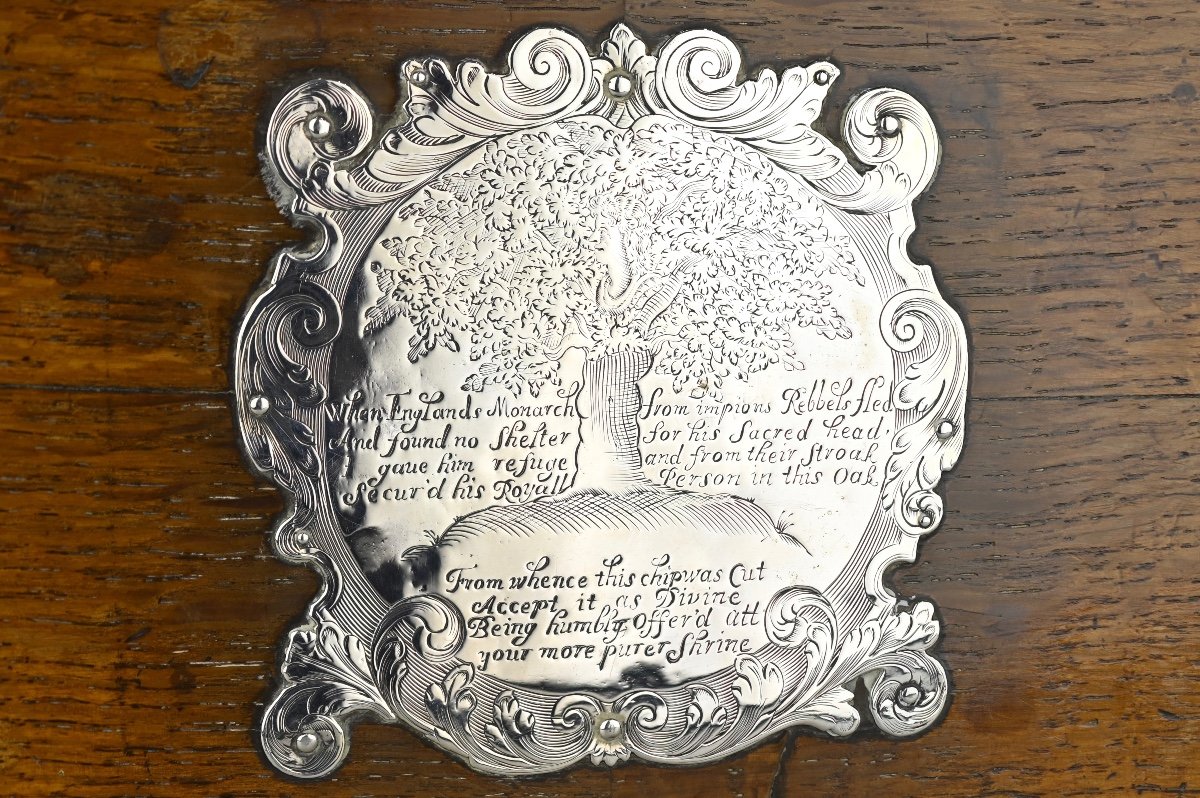 When Englands Monarch from impious Rebbels fled
And found no Shelter for his Sacred head,
gaue him refuge and from their Stroak
Secur'd his Royall Person in this Oak
From whence this chip was Cut
Accept it as Divine
Being humbly Offer'd att
your more purer Shrine